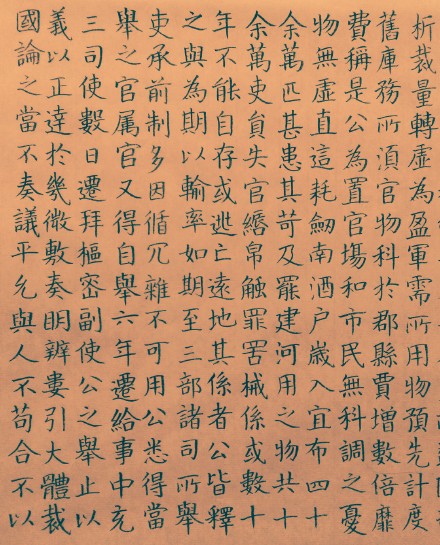 析裁量轉虛為盈軍需所用物預先計度
舊庫務所湏官物科於郡縣費增數倍靡
費稱是公為置官場和市民無科調之憂
物無虛直這耗劒南酒户嵗入宜布四十
余萬匹甚患其苛及罷建河用之物共十
余萬吏貟失官緡帛触罪罟械係或數十
年不能自存或逃亡遠地其係者公皆釋
之與為期以輸率如期至三部諸司所舉
吏承前制多因循冗雜不可用公悉得當
舉之官属官又得自舉六年遷給事中充
三司使數日遷拜樞密副使公之舉止以
義以正達於幾微敷奏眀辨婁引大體裁
國論之當不奏議平允與人不苟合不以